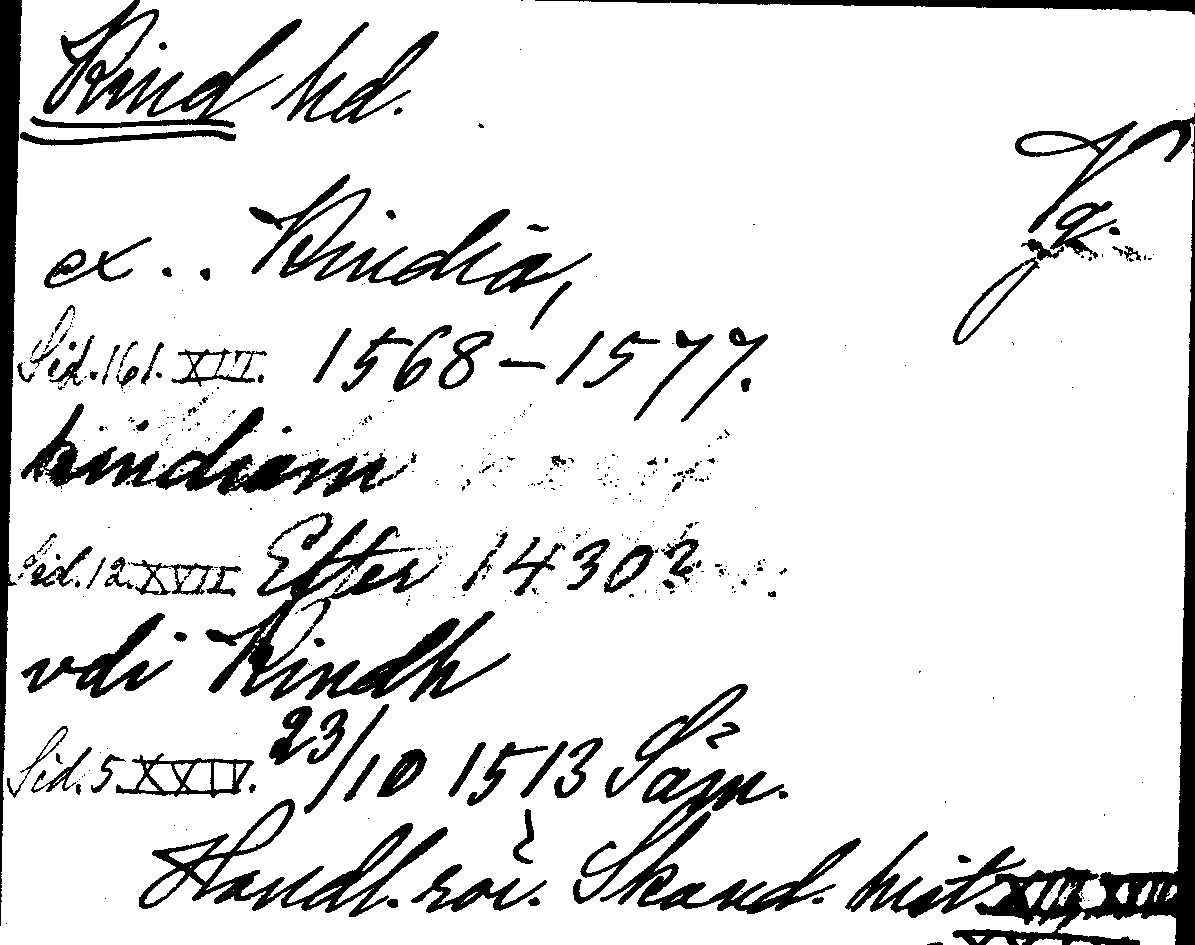 Kind hd.
Vg.
ex .. Kindia,
Sid. 161. XIII. 1568-1577.
kindiam
Sid. 12. XVII. Efter 1430?
vdi Kindh
Sid. 5 XXIV. 23/10 1513 Säm.
Handl. rör. Skand. hist. XIII, XVII